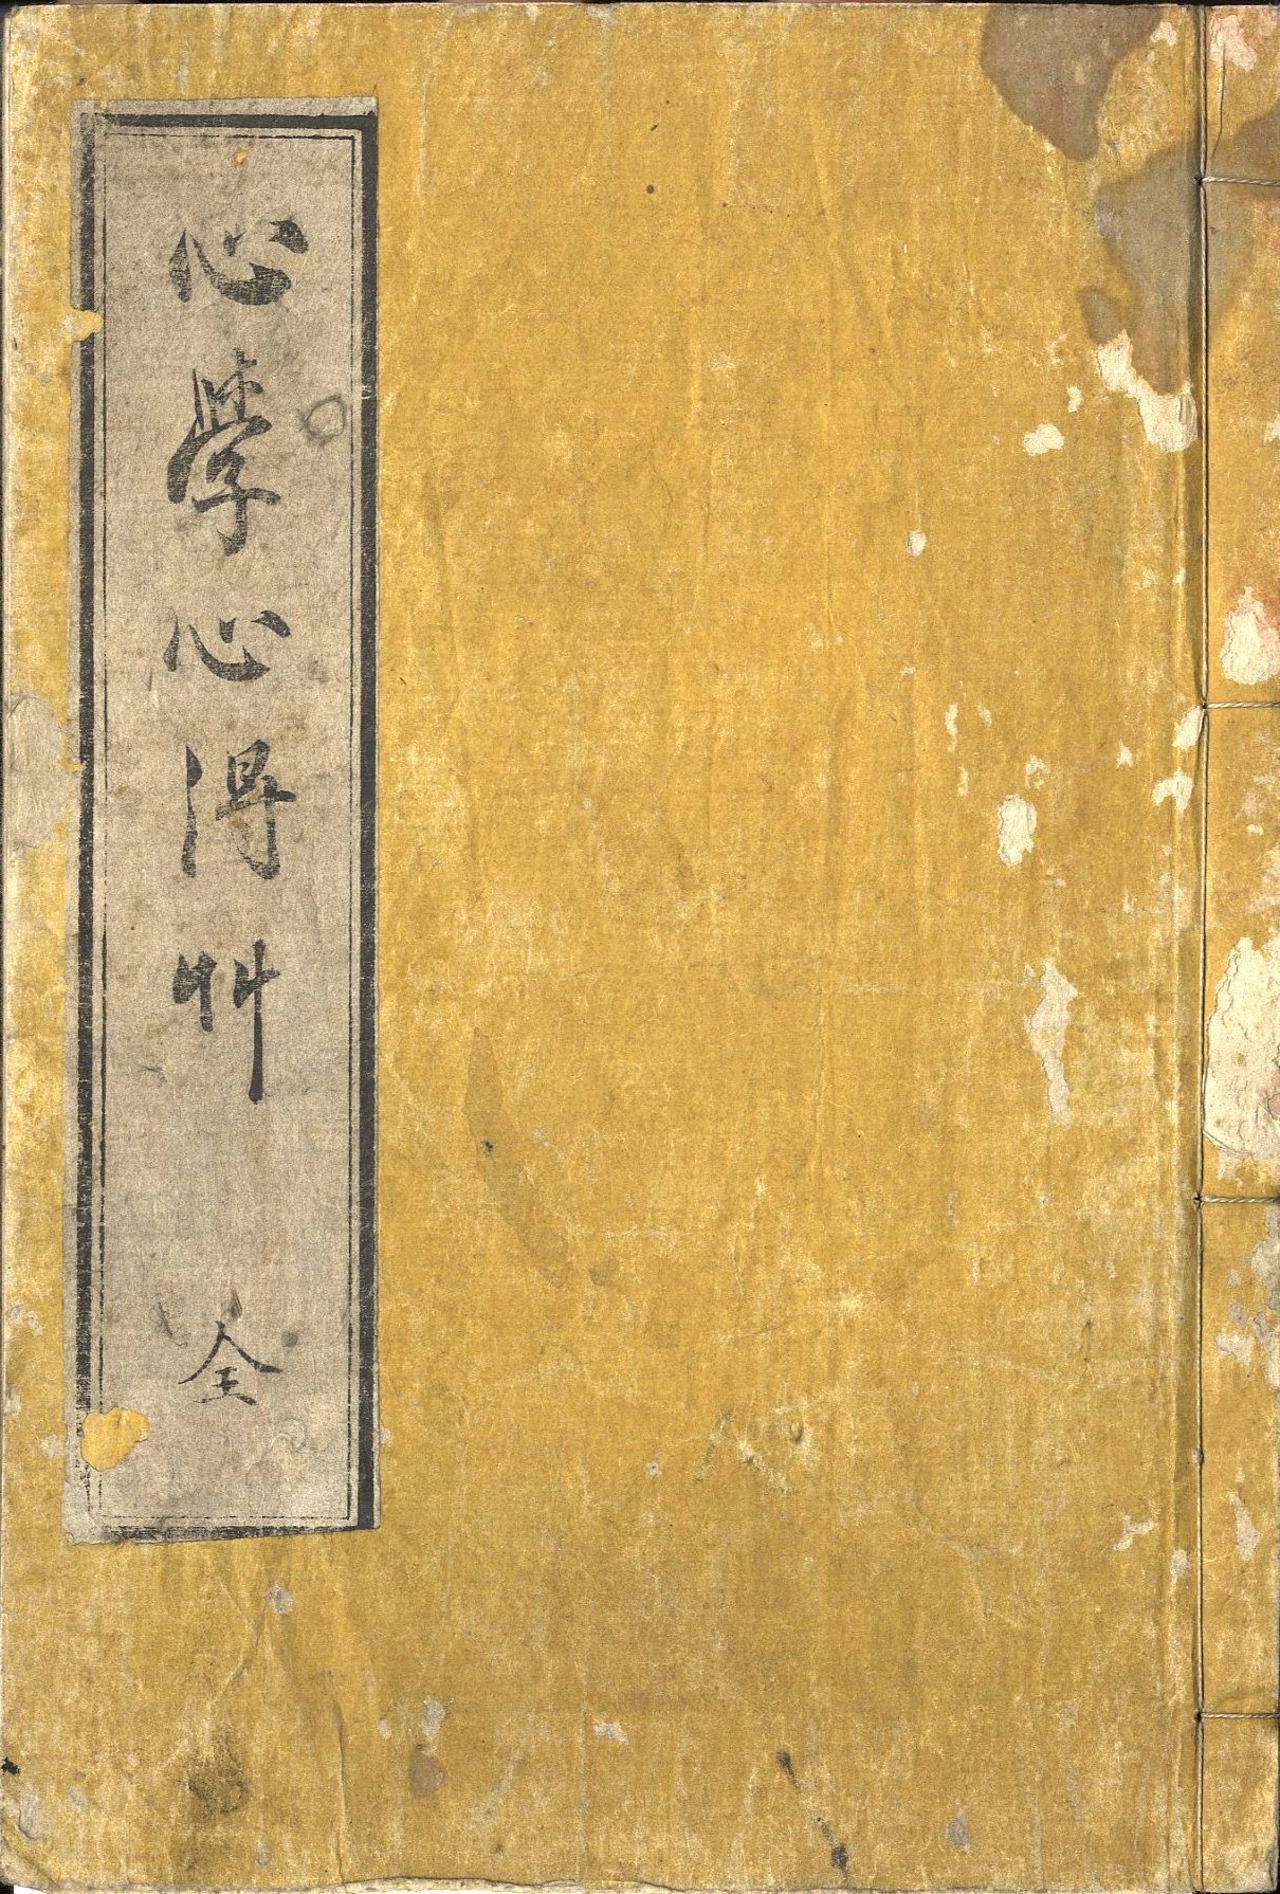 心學心得艸
全